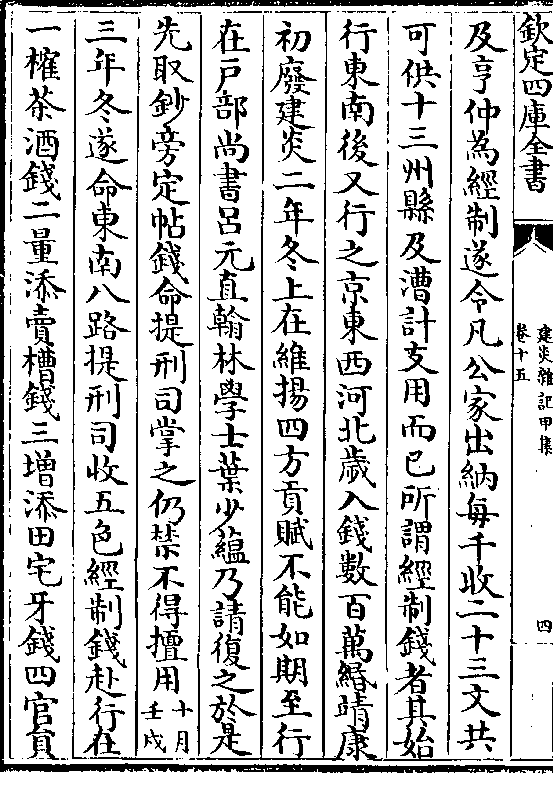 欽定四庫全書
建炎雜記甲集
卷十五
四
及亨仲為經制遂令凡公家出納每千收二十三文共
可供十三州縣及漕計支用而已所謂經制錢者其始
行東南後又行之京東西河北歲入錢數百萬緡靖康
初廢建炎二年冬上在維揚四方貢賦不能如期至行
在戸部尚書吕元直翰林學士葉少藴乃請復之於是
先取鈔旁定帖錢命提刑司掌之仍禁不得擅用十月壬戌
三年冬遂命東南八路提刑司收五色經制錢赴行在
一榷茶酒錢二量添賣糟錢三增添田宅牙錢四官員